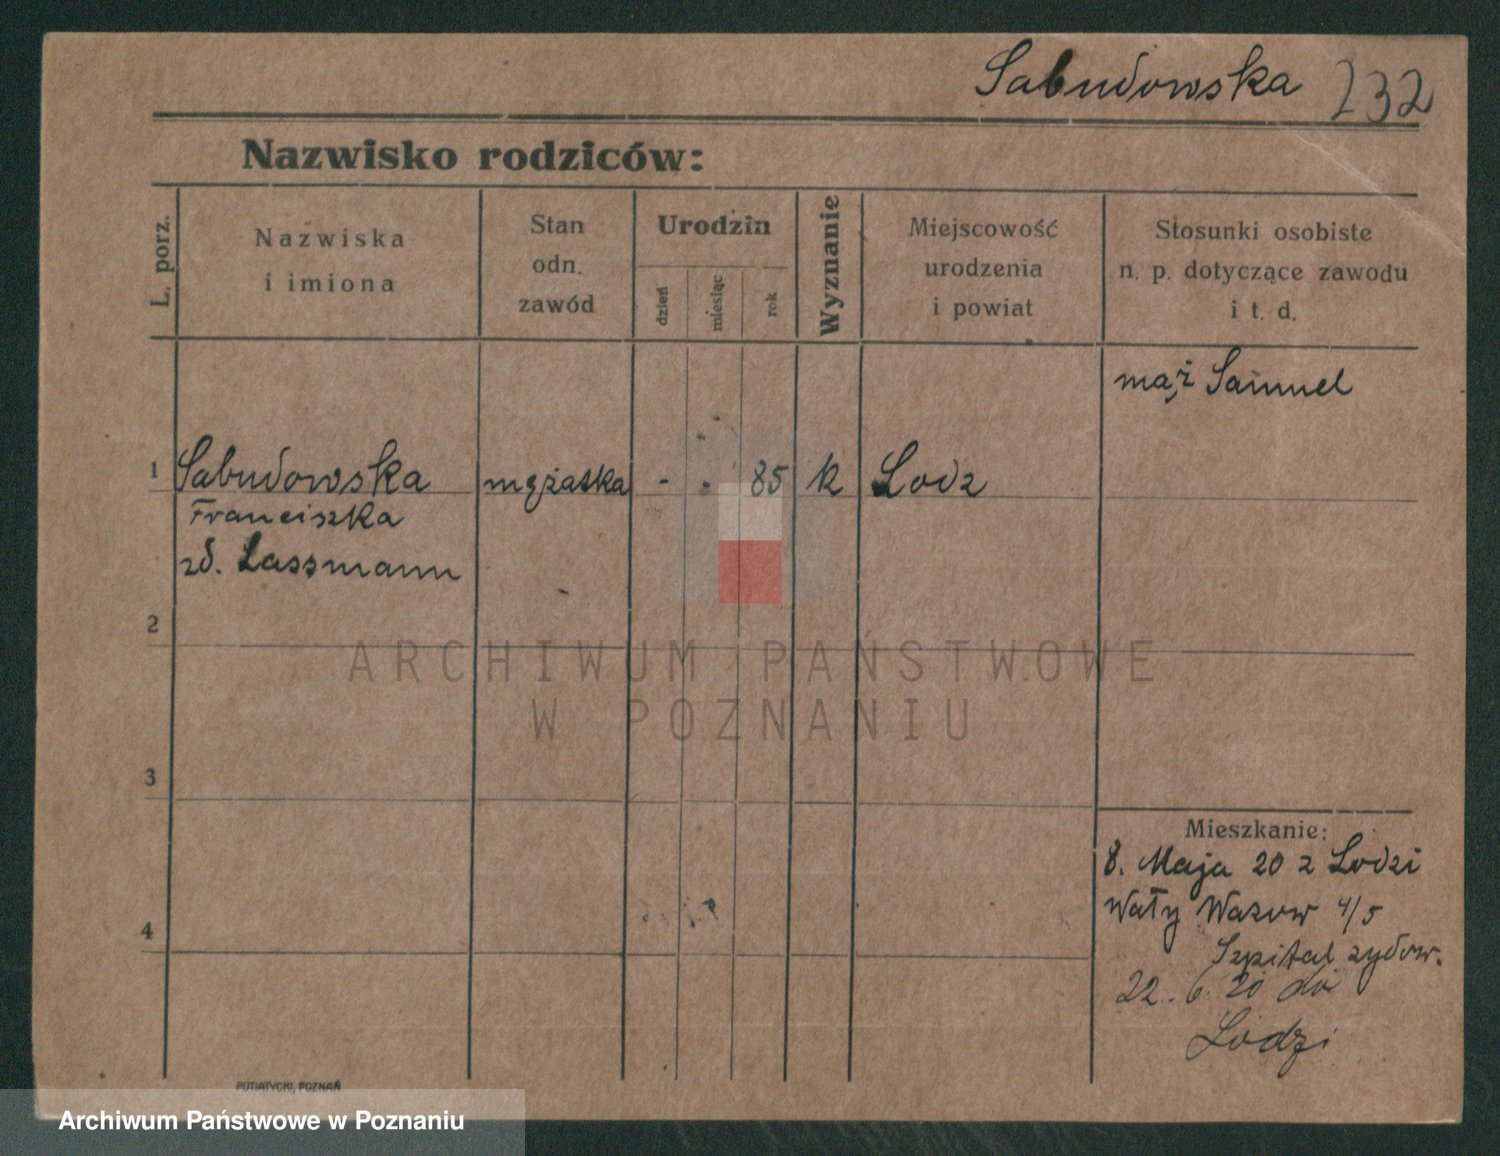 Sabudowska 232
Nazwisko rodziców:
L. porz.
Nazwiska
i imiona
Stan
odn.
zawód
Urodzin
dzień
miesiąc
rok
Wyznanie
Miejscowość
urodzenia
i powiat
Stosunki osobiste
n. p. dotyczące zawodu
i t. d.
mąż Samuel
1 Sabudowska mężatka - . 85 k Lodz
Franciszka
zd. Lassmann
2
3
4
Mieszkanie:
8. Maja 20 z Lodzi
Wały Wazow 4/5
Szpital zydow.
22. 6. 20 do
Lodzi
PUTIATYCKI, POZNAŃ
ARCHIWUM PAŃSTWOWE
W POZNANIU
Archiwum Państwowe w Poznaniu